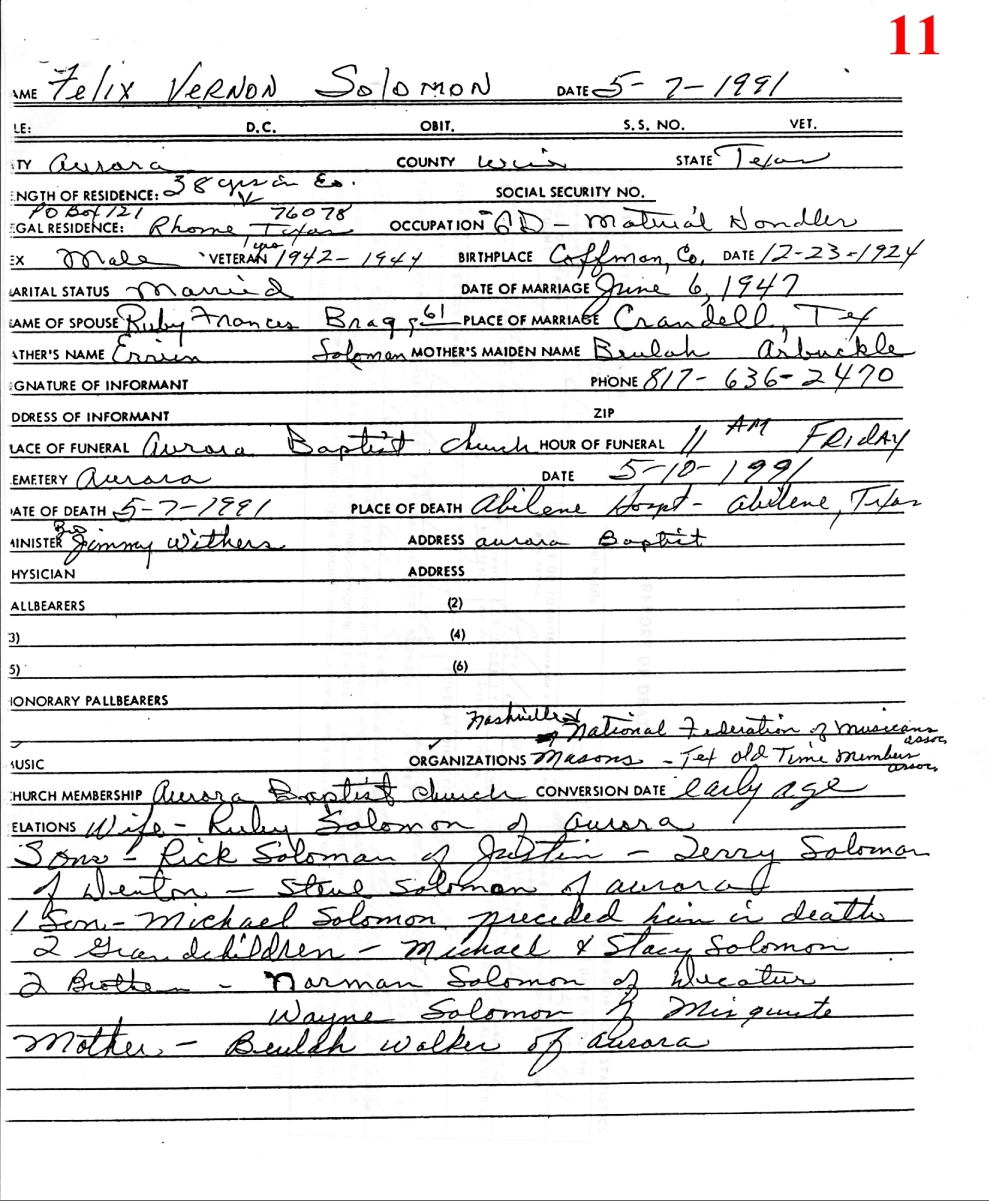 11
AME Felix Vernon Solomon DATE 5-7-1991
LE: D.C. OBIT. S.S. NO. VET.
TY Aurora COUNTY Wise STATE Texas
ENGTH OF RESIDENCE: 38 yrs in Co. SOCIAL SECURITY NO.
PO Box 121 76078
EGAL RESIDENCE: Rhome, Texas OCCUPATION GD - Material Handler
EX Male VETERAN 1942-1944 BIRTHPLACE Coffman, Co. DATE 12-23-1924
ARITAL STATUS Married DATE OF MARRIAGE June 6, 1947
AME OF SPOUSE Ruby Frances Bragg 61 PLACE OF MARRIAGE Crandell, Tex
ATHER'S NAME Solomon MOTHER'S MAIDEN NAME Beulah Arbuckle
GNATURE OF INFORMANT PHONE 817-636-2470
DDRESS OF INFORMANT ZIP
LACE OF FUNERAL Aurora Baptist Church HOUR OF FUNERAL 11 AM Friday
EMETERY Aurora DATE 5-10-1991
ATE OF DEATH 5-7-1991 PLACE OF DEATH Abilene Hospt - Abilene, Texas
Bro
INISTER Jimmy Withers ADDRESS Aurora Baptist
HYSICIAN ADDRESS
ALLBEARERS (2)
3) (4)
5) (6)
IONORARY PALLBEARERS
Nashville National Federation of Musicians assoc,
USIC ORGANIZATIONS Masons - Tex old Time Members assoc,
HURCH MEMBERSHIP Aurora Baptist Church CONVERSION DATE early age
ELATIONS Wife - Ruby Solomon of Aurora
Sons - Rick Soloman of Justin - Terry Solomon
of Denton - Steve Solomon of Aurora
1 Son - Michael Solomon preceded him in death
2 Grandchildren - Michael & Stacy Solomon
2 Brothers - Norman Solomon of Decatur
Wayne Solomon of Misquite
Mother - Beulah Walker of Aurora